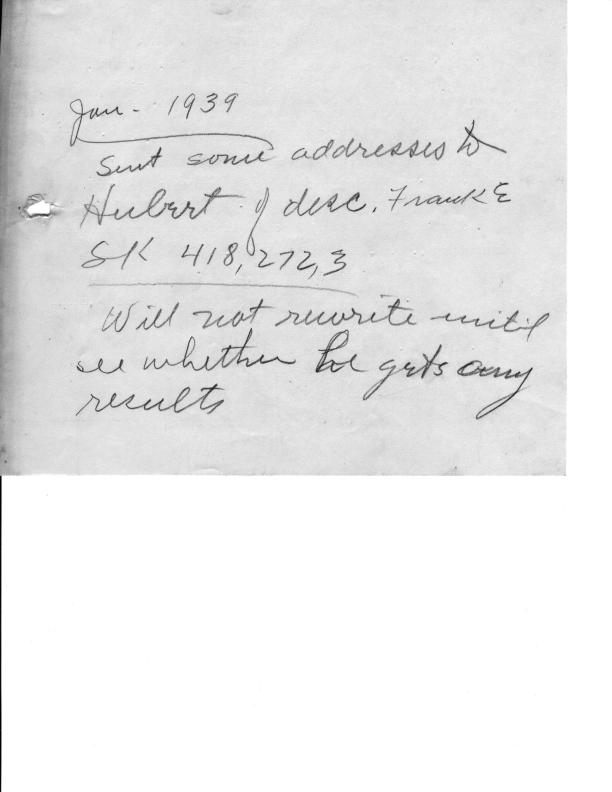 Jan - 1939
Sent some addresses to
Hubert of desc. Frank E
SK 418,272,3
Will not rewrite until
see whether he gets any
results